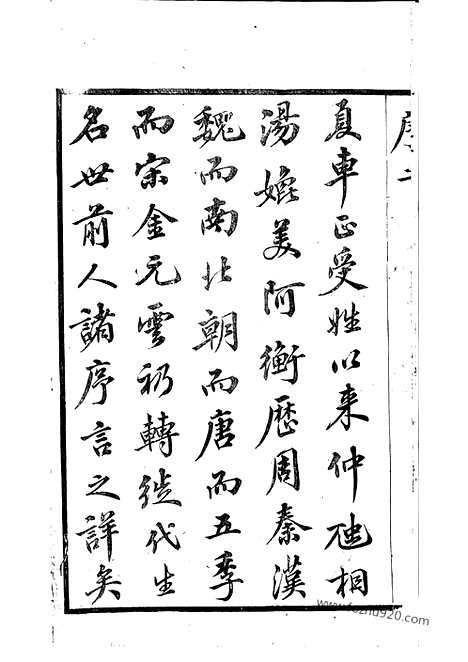 序二
夏車正受姓以来仲虺相
湯媲美阿衡歷周秦漢
魏而南北朝而唐而五季
而宋金元雲礽轉徙代生
名世前人諸序言之詳矣
www.fozhu920.com